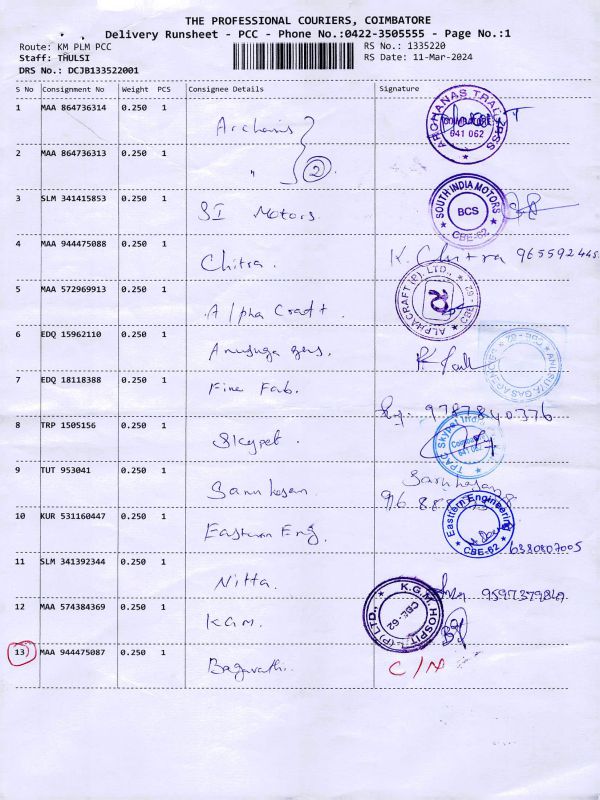 THE PROFESSIONAL COURIERS, COIMBATORE
Delivery Runsheet - PCC - Phone No.:0422-3505555 - Page No.:1
Route: KM PLM PCC RS No.: 1335220
Staff: THULSI RS Date: 11-Mar-2024
DRS No.: DCJB133522001
S No Consignment No Weight PCS Consignee Details Signature
1 MAA 864736314 0.250 1 Archanas ARCHANAS TRAC 641 062
2 MAA 864736313 0.250 1 " 2
3 SLM 341415853 0.250 1 SI Motors SOUTH INDIA MOTORS BCS CBE-62
4 MAA 944475088 0.250 1 Chitra. K. Chitra 965592445
5 MAA 572969913 0.250 1 Alpha Craft. ALPHACRAFT (P). LTD., CBE - 62
6 EDQ 15962110 0.250 1
7 EDQ 18118388 0.250 1 Fine Fab. 9787840376
8 TRP 1505156 0.250 1 Skypet. Coimbatore 641 062
9 TUT 953041 0.250 1
10 KUR 531160447 0.250 1 Eastern Eng. Eastern Engineering CBE-62 6380807005
11 SLM 341392344 0.250 1 Nitta.
12 MAA 574384369 0.250 1 K.G.M. K.G.M. HOSPITAL (P) LTD., CBE-62
13 MAA 944475087 0.250 1 Bagavathi. C/N